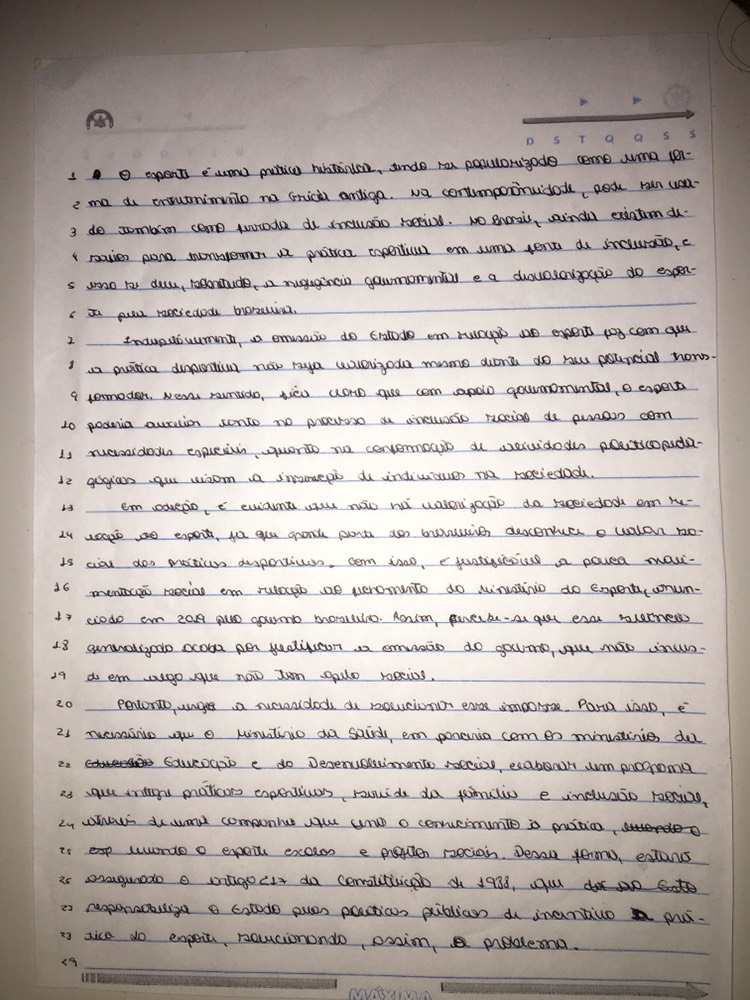 D S T Q Q S S
1 O esporte é uma prática histórica, tendo se popularizado como uma for-
2 ma de entretenimento na Grécia antiga. Na contemporaneidade, pode ser usa-
3 do também como jornada de inclusão social. No Brasil, ainda existem de-
4 safios para transformar a prática esportiva em uma fonte de inclusão, e
5 isso se deve, sobretudo, a negligência governamental e a desvalorização do espor-
6 te pela sociedade brasileira.
7 Indubitavelmente, a omissão do Estado em relação ao esporte faz com que
8 a prática desportiva não seja valorizada mesmo diante do seu potencial trans-
9 formador. Nesse sentido, fica claro que com apoio governamental, o esporte
10 poderia auxiliar tanto no processo de inclusão social de pessoas com
11 necessidades especiais, quanto na conformação de atividades politicopeda-
12 gógicas que visam a inserção de indivíduos na sociedade.
13 Em adição, é evidente que não há valorização da sociedade em re-
14 lação ao esporte, já que grande parte dos brasileiros desconhece o valor so-
15 cial das práticas desportivas. Com isso, é justificável a pouca movi-
16 mentação social em relação ao fechamento do Ministério do Esporte, anun-
17 ciado em 2019 pelo governo brasileiro. Assim, percebe-se que esse silêncio
18 generalizado acaba por justificar a omissão do governo, que não inves-
19 te em algo que não tem apelo social.
20 Portanto, urge a necessidade de solucionar esse impasse. Para isso, é
21 necessário que o Ministério da Saúde, em parceria com os ministérios da
22 Educação e do Desenvolvimento social, elaborar um programa
23 que integre práticas esportivas, saúde da família e inclusão social,
24 através de uma campanha que una o conhecimento à prática,
25 levando o esporte escolas e projetos sociais. Dessa forma, estará
26 assegurado o artigo 217 da Constituição de 1988, que
27 responsabiliza o Estado pelas políticas públicas de incentivo a prá-
28 tica do esporte, solucionando, assim, o problema.
29
MÁXIMA